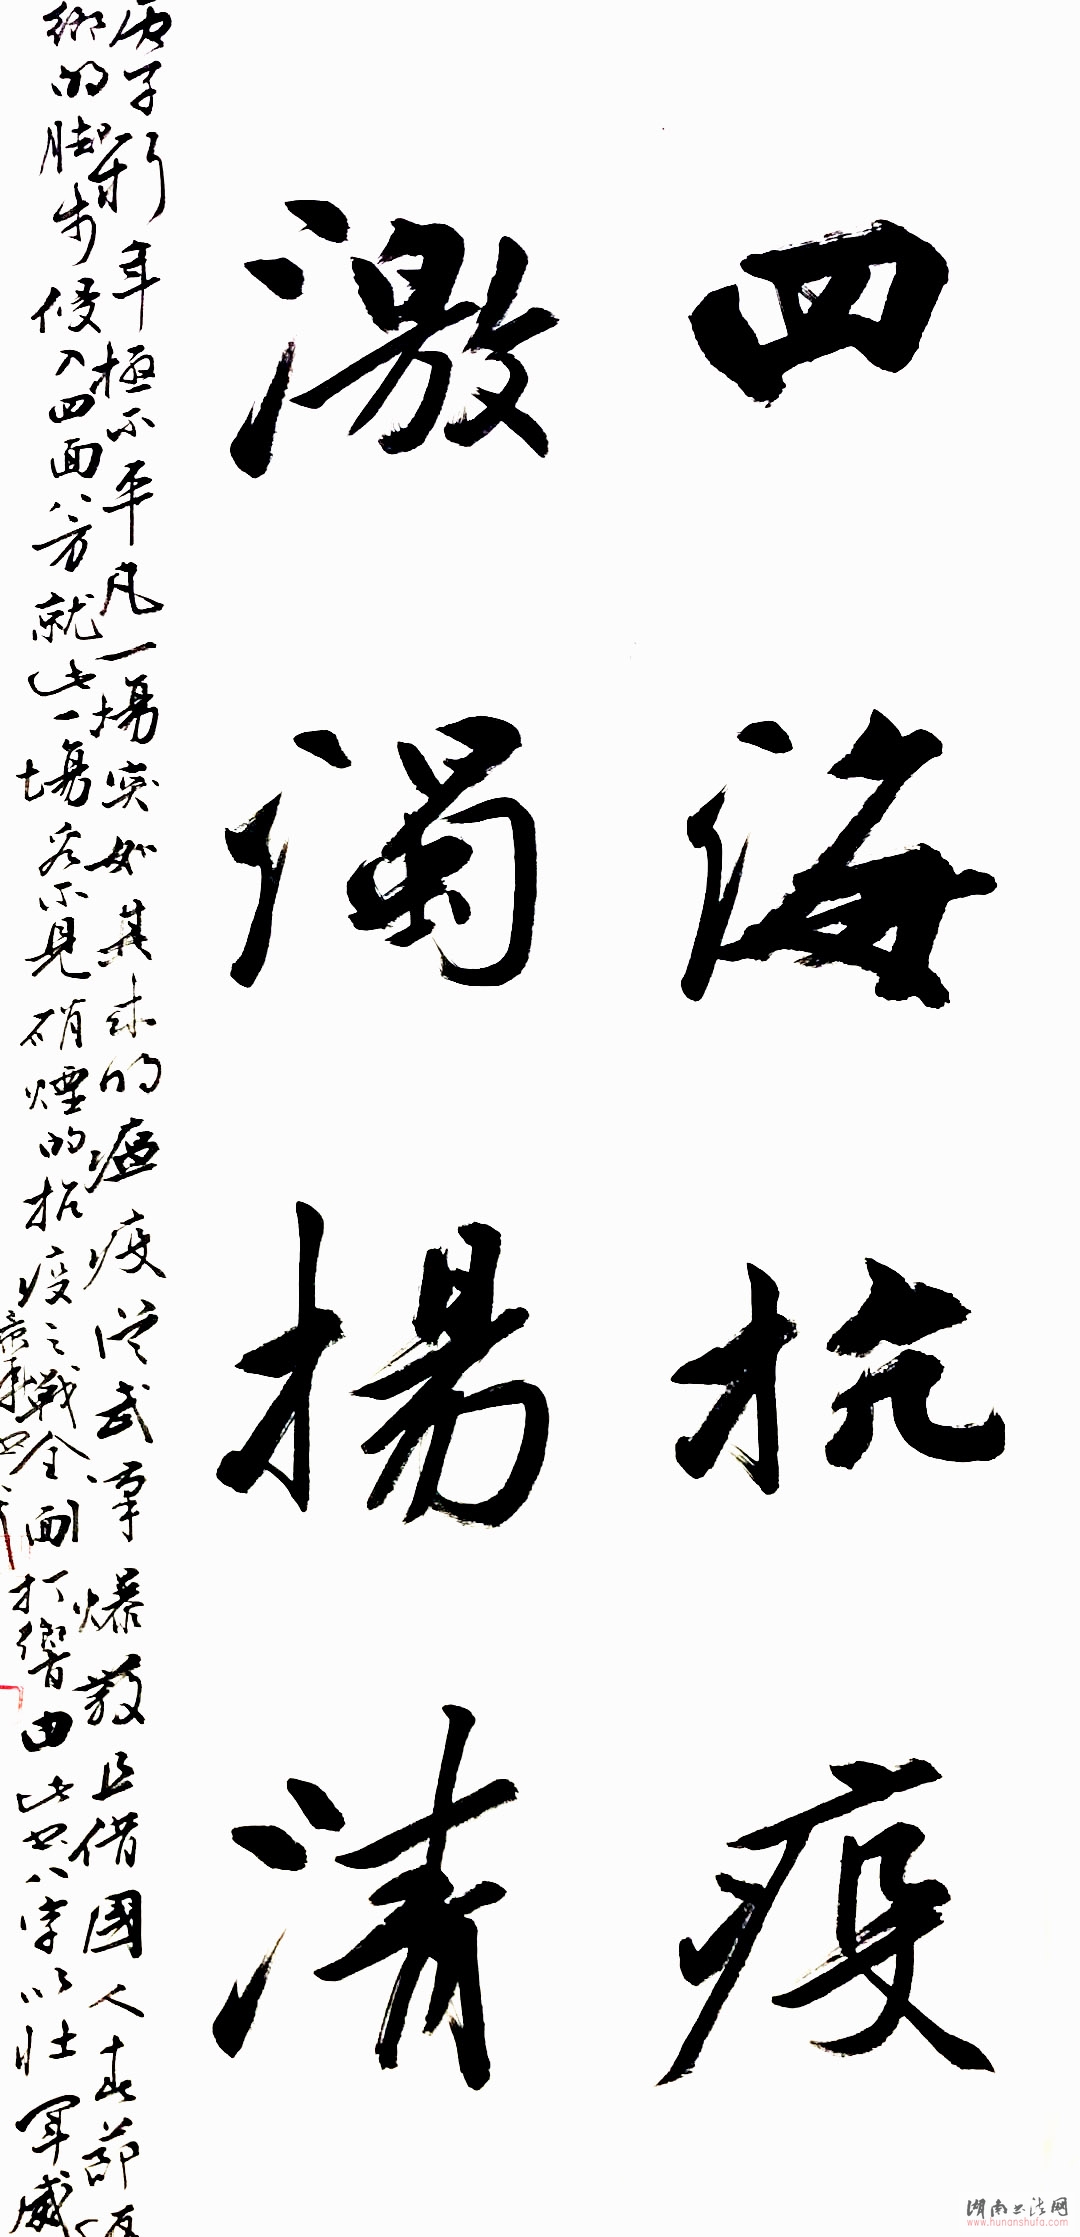 四海抗疫
激濁揚清
庚子新年極不平凡一場突如其來的瘟疫從武漢爆發且借國人春節返
鄉的腳步侵入四面八方就此一場看不見硝煙的抗疫之戰全面打響由此書八字以壯軍威
湖南书法网
www.hunanshufa.com